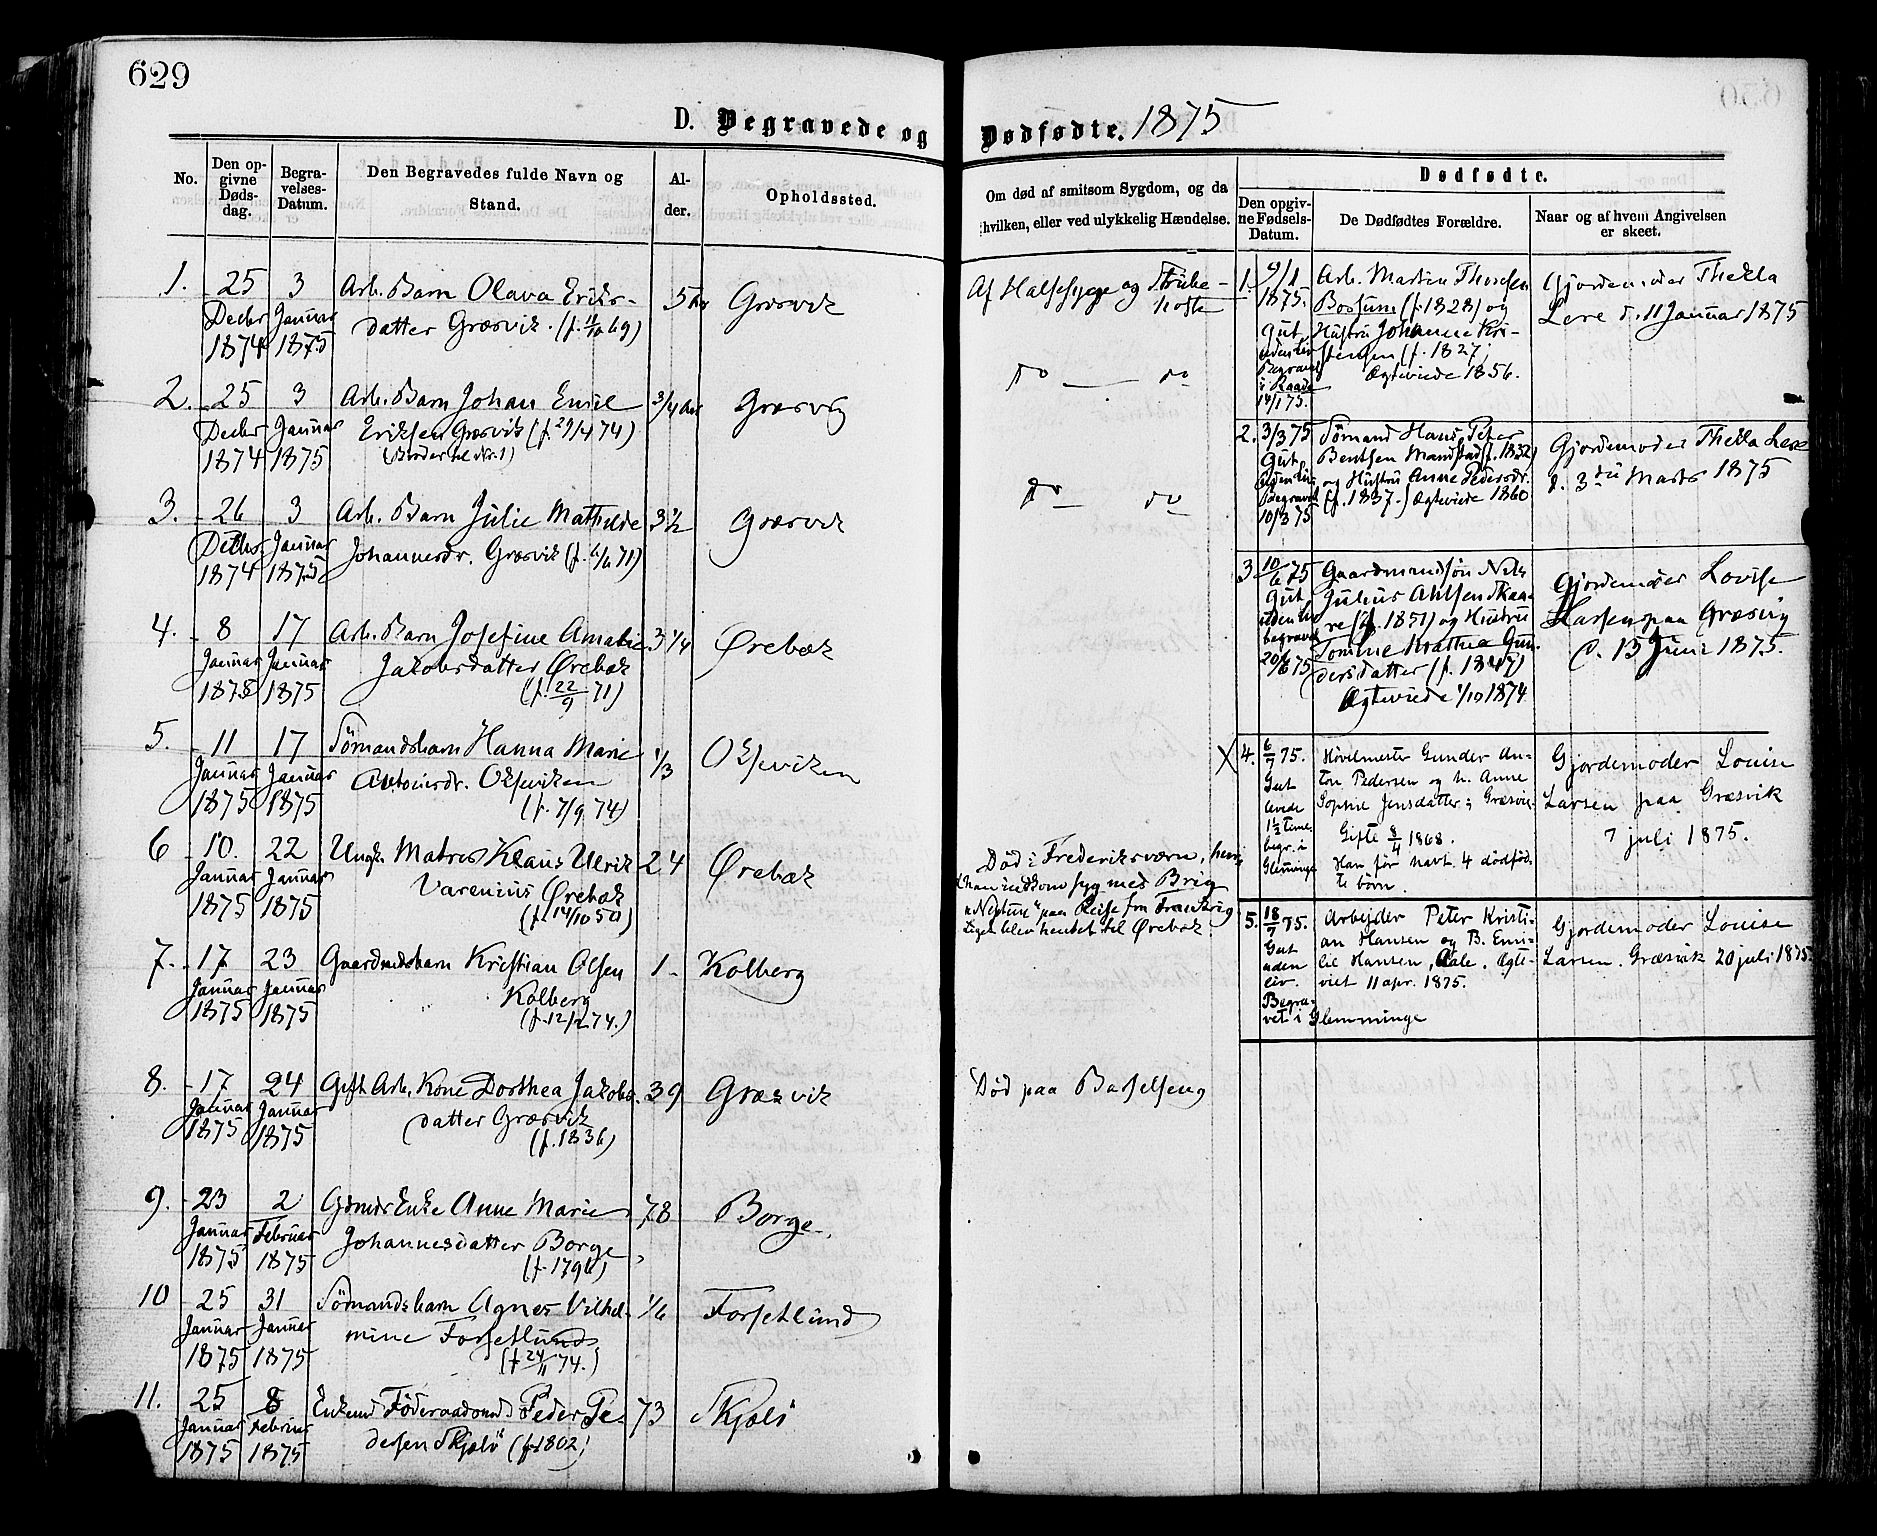 629
D. Begravede og Dødfødte. 1875
No.
Den opgivne Dødsdag.
Begravelses-Datum.
Den Begravedes fulde Navn og Stand.
Alder.
Opholdssted.
Om død af smitsom Sygdom, og da hvilken, eller ved ulykkelig Hændelse.
Dødfødte.
Den opgivne Fødsels-Datum.
De Dødfødtes Forældre.
Naar og af hvem Angivelsen er skeet.
1. 25 3 Arb. Barn Olava Eriks- 5 Aar Græsvik
Decbr Januar datter Græsvik.
1874 1875
Af Halssyge og Strube-
hoste
2. 25 3 Arb. Barn Johan Emil 3/4 Aar Græsvig
Decbr Januar Eriksen Græsvik (f. 29/4 74)
1874 1875 (Broder til Nr. 1)
do — do
3. 26 3 Arb. Barn Julie Mathilde 3 1/2 Græsvik
Decbr. Januar Johannesdr. Græsvik
1874 1875
do — do
4. 8 17 Arb. Barn Josefine Amalie 3 1/4 Ørebæk
Januar Januar Jakobsdatter Ørebæk
1875 1875 (f. 22/9 71)
5. 11 17 Sømandsbarn Hanna Marie 1/3 Oksviken
Januar Januar Antonsdr. Oksviken
1875 1875 (f. 7/9 74)
6 10. 22 Ungk. Matros Klaus Ulrik 24 Ørebæk
Januar Januar Varenius Ørebæk
1875 1875 (f. 14/10 50)
Død i Frederiksværn, hvor
han indkom syg med Brig
"Neptun" paa Reise fra Frankrig
Liget blev hentet til Ørebæk.
7. 17 23 Gaardmdsbarn Kristian Olsen 1 - Kolberg
Januar Januar Kolberg
1875 1875 (f. 12/2 74.)
8. 17 24 Gift Arb. Kone Dorthea Jakobs- 39 Græsvik
Januar Januar datter Græsvik
1875 1875 (f. 1836)
Død paa Barselseng
9. 23 2 Gdmds Enke Anne Marie 78 Borge.
Januar Februar Johannesdatter Borge
1875 1875 (f. 1796)
10 25 31 Sømandsbarn Agnes Vilhel- 1/6 Forsetlund
Januar Januar mine Forsetlund
1875 1875 (f. 24/11 74.)
11. 25 8 Enkemd Føderaadsmd Peder Pe- 73 Skjælø
Januar Februar dersen Skjælø (f. 1802)
1875 1875
1. 9/1 Arb. Martin Thorsen Gjordemoder Thekla
1875. (f. 1828) og Lere d. 11 Januar 1875
Gut, Hustru Johanne Kri-
uden Liv stensen (f. 1827;
Begravet Ægteviede 1856.
i Raade
14/1 75.
2. 3/3 75 Sømand Hans Peter Gjordemoder Thekla Lere
Gut, Bentsen Mandstad (f. 1832) d. 3die Marts 1875
uden Liv og Hustru Anne Pedersdr.
Begravet (f. 1837.) Ægteviede 1860
10/3 75
3 10/6 75 Gaardmandssøn Nils Gjordemoder Lovise
Gut, Julius Ahlsen Skaa- Larsen paa Græsvig
uden Liv re (f. 1851) og Hustru d. 13 Juni 1875.
begravet Tomine Mathea Gun-
20/6 75 dersdatter (f. 1847)
Ægteviede 1/10 1874
X 4. 6/7 75. Høvlemester Gunder An- Gjordemoder Louise
Gut ton Pedersen og h. Anne Larsen paa Græsvik
levede Sophie Jensdatter i Græsvig. 7 juli 1875.
1 1/2 time. Gifte 8/4 1868.
begr. i Han før havt 4 dødfød-
Glemminge te børn.
5. 18/7 75. Arbejder Peter Kristi- Gjordemoder Louise
Gut an Hansen og B. Emi- Larsen. Græsvik 20 juli 1875.
uden lie Hansen, Aale. Ægte-
liv. viet 11 apr. 1875.
Begra-
vet i Glemminge